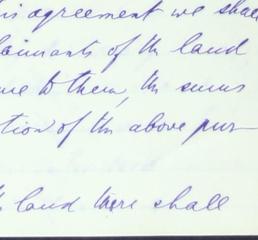 his agreement we shall
laimants of the land
me to them, the sums
tion of the above pur-
land there shall